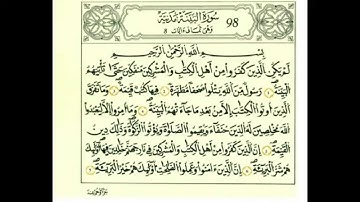 سُورَةُ الْبَيِّنَةِ مَدَنِيَّة 98
وَهِيَ ثَمَانِي آيَات 8
بِسْمِ اللَّهِ الرَّحْمَٰنِ الرَّحِيمِ
لَمْ يَكُنِ الَّذِينَ كَفَرُوا مِنْ أَهْلِ الْكِتَٰبِ وَالْمُشْرِكِينَ مُنْفَكِّينَ حَتَّىٰ تَأْتِيَهُمُ
الْبَيِّنَةُ ۝ رَسُولٌ مِنَ اللَّهِ يَتْلُوا صُحُفًا مُطَهَّرَةً ۝ فِيهَا كُتُبٌ قَيِّمَةٌ ۝ وَمَا تَفَرَّقَ
الَّذِينَ أُوتُوا الْكِتَٰبَ إِلَّا مِنْ بَعْدِ مَا جَاءَتْهُمُ الْبَيِّنَةُ ۝ وَمَا أُمِرُوا إِلَّا لِيَعْبُدُوا
اللَّهَ مُخْلِصِينَ لَهُ الدِّينَ حُنَفَاءَ وَيُقِيمُوا الصَّلَوٰةَ وَيُؤْتُوا الزَّكَوٰةَ وَذَٰلِكَ دِينُ
الْقَيِّمَةِ ۝ إِنَّ الَّذِينَ كَفَرُوا مِنْ أَهْلِ الْكِتَٰبِ وَالْمُشْرِكِينَ فِي نَارِ جَهَنَّمَ خَٰلِدِينَ فِيهَا أُولَٰئِكَ
هُمْ شَرُّ الْبَرِيَّةِ ۝ إِنَّ الَّذِينَ ءَامَنُوا وَعَمِلُوا الصَّٰلِحَٰتِ أُولَٰئِكَ هُمْ خَيْرُ الْبَرِيَّةِ ۝